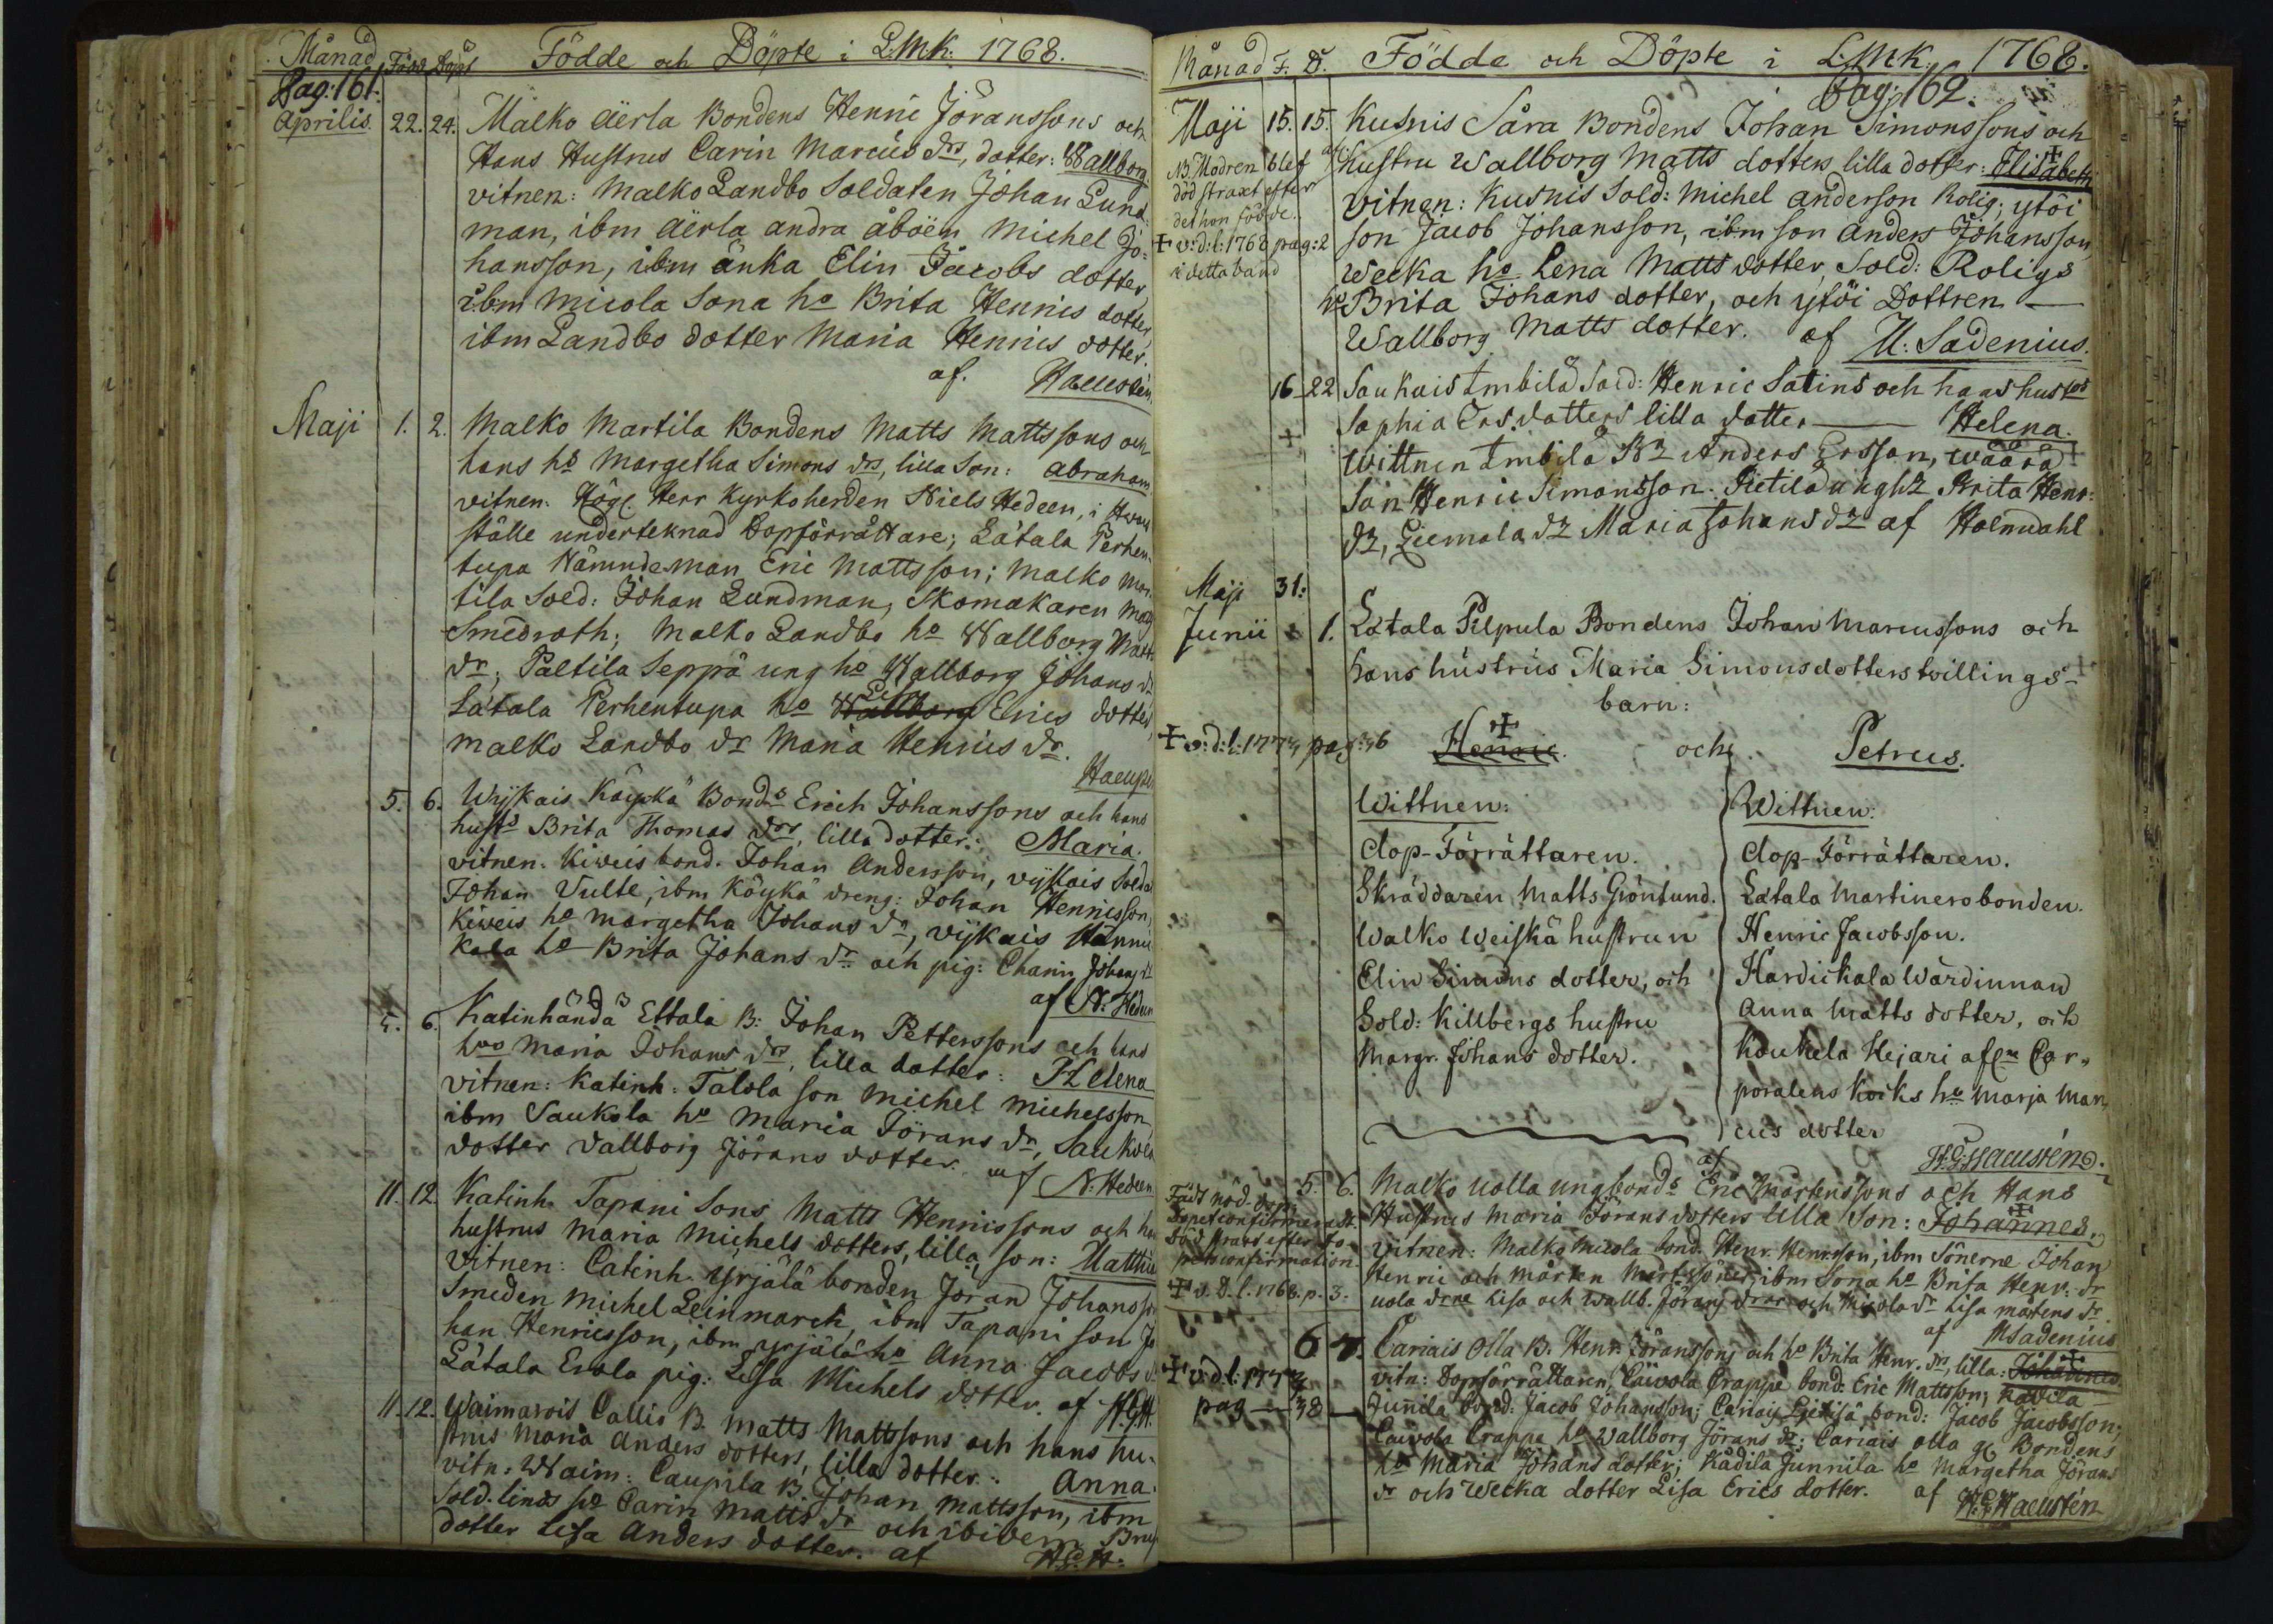 Månad Född Döpt Födde och Döpte i L.M.K. 1768.
Pag: 161.
Aprilis. 22. 24. Malko Aërla Bondens Henric Jöranssons och
Hans Hustrus Carin Marcus drs, dotter: Wallborg.
vitnen: Malko Landbo Soldaten Johan Lund-
man, ibm Aërla andra åboën Michel Jo-
hansson, ibm änka Elin Jacobs dotter
ibm Micola Sona ho Brita Henrics dotter,
ibm Landbo dotter Maria Henrics dotter.
af. Haeusten
Maji 1. 2. Malko Martila Bondens Matts Mattssons och
hans hs Margetha Simons drs, lilla Son: Abraham
vitnen. Högl. Herr Kyrkoherden Niels Hedeen, i hvars
ställe underteknad Dopförrättare; Låtala Perhen-
tupa Nämndeman Eric Mattsson; Malko Mar-
tila Sold: Johan Lundman, Skomakaren
Smedroth; Malko Landbo ho Wallborg Matts
dr; Paltila Seppä ung ho Wallborg Johans dr
Låtala Perhentupa ho Wallborg Lisa Erics dotter,
malko Landbo dr Maria Henrics dr.
5. 6. Wijkais Käykä Bonds Erich Johanssons och hans
husts Brita Thomas drs, lilla dotter: Maria.
vitnen. Kiweis bond. Johan Andersson, vijkais Soldat
Johan Vulte, ibm Köykä dreng: Johan Henricsson,
Kiweis ho Margetha Johans dr, vijkais Hannu
kala ho Brita Johans dr och pig: Charin Johans dr
af N: Hedeen
5. 6. Katinhändä Eltala B: Johan Petterssons och hans
hvs Maria Johans drs, lilla dotter: Helena
vitnen: Katinh: Talola son Michel Michelsson,
ibm Saukola ho Maria Jörans dr, Saukola
dotter Vallborg Jörans dotter. af N: Hedeen
11. 12. Katinh. Tapani Sons Matts Henricssons och
hustrus Maria Michels dotters, lilla son: Matthie
Vitnen: Catinh. Yrjälä bonden Jöran Johansson
Smeden Michel Leinmarck, ibm Tapani son Jo
han Henricsson, ibm yrjälä ho Anna Jacobs dr
Låtala Erola pig: Lisa Michels dotter. af HGH.
11. 12. Waimarois Callio B. Matts Mattssons och hans hu-
strus Maria Anders dotters, lilla dotter: Anna.
vitn: Waim: Caupila B. Johan Mattsson, ibm
Sold. linds ho Carin Matts dr och ibidem
dotter Lisa Anders dotter. af HGH.
Månad F. D. Födde och Döpte i L.M.K. 1768.
Pag: 162.
Maji 15. 15. Kusnis Såra Bondens Johan Simonssons och
NB. Modren blef
död straxt efter
det hon födde.
+ v: d: l: 1768 pag: 2
i detta band
afl. hustru Wallborg Matts dotters lilla dotter: Elisabeth
vitnen: Kusnis Sold: Michel Andersson Rolig; ytöi
son Jacob Johansson, ibm son Anders Johansson,
Wecka ho Lena Matts dotter, Sold: Roligs
ho Brita Johans dotter, och ytöi Dottren
Wallborg Matts dotter. af M: Sadenius.
16 22 Saukais Embilä Sold: Henric Satins och hans hustrs
Sophia Ers. dotters lilla dotter Helena.
Wittnen Embilä Bz Anders Ersson, Wäärä
Son Henric Simonsson. Pietilä ungHz Brita Henr:
dz, Liemola dz Maria Johans dz af Holmdahl
Maji 31:
Junii 1. Låtala Pilpula Bondens Johan Marcussons och
hans hustrus Maria Simonsdotters tvillings-
barn:
+ v: d: l: 1774 pag: 46 Henric. och Petrus.
Wittnen:
Dop-Förrättaren.
Skräddaren Matts Gröntund.
Walko Weiskä hustrun
Elin Simons dotter, och
Sold: Killbergs hustru
Margr. Johans dotter.
Wittnen:
Dop-Förrättaren.
Låtala Martinero bonden.
Henric Jacobsson.
Hardickala Wärdinnan
Anna Matts dotter, och
Koukela Hejari afln Cor-
poralens Kocks ho Marja Mar-
cus dotter
af H.G. Haeustén.
5. 6. Malko uolla ung bonds Eric Mårtenssons och Hans
Hustrus Maria Jörans dotters lilla Son: Johannes.
vitnen: Malko Micola bond. Henr. Henrsson, ibm Sönerne Johan
Henric och Mårten Mårtssöner, ibm Sona ho Brita Henr: dr
uola drne Lisa och Wallb. Jörans drar och Micola dr Lisa Mårtens dr.
af M Sadenius
+ v. D. l. 1768. p. 3.
6 7. Cariais Olla B. Henr. Jöranssons och ho Brita Henr. drs, lilla: Johannes
vitn: Dopförrättaren, Cäivola Crappe bond: Eric Mattsson; Kådila
+ v: d: l: 1773
pag 38
Junila bond: Jacob Johansson; Cariais Lietisä bond: Jacob Jacobsson;
Cäivola Crappe ho Wallborg Jörans dr; Cariais olla gl. Bondens
ho Maria Johans dotter; Kådila Junnila ho Margetha Jörans
dr och Wecka dotter Lisa Erics dotter. af H.G. Haeustén